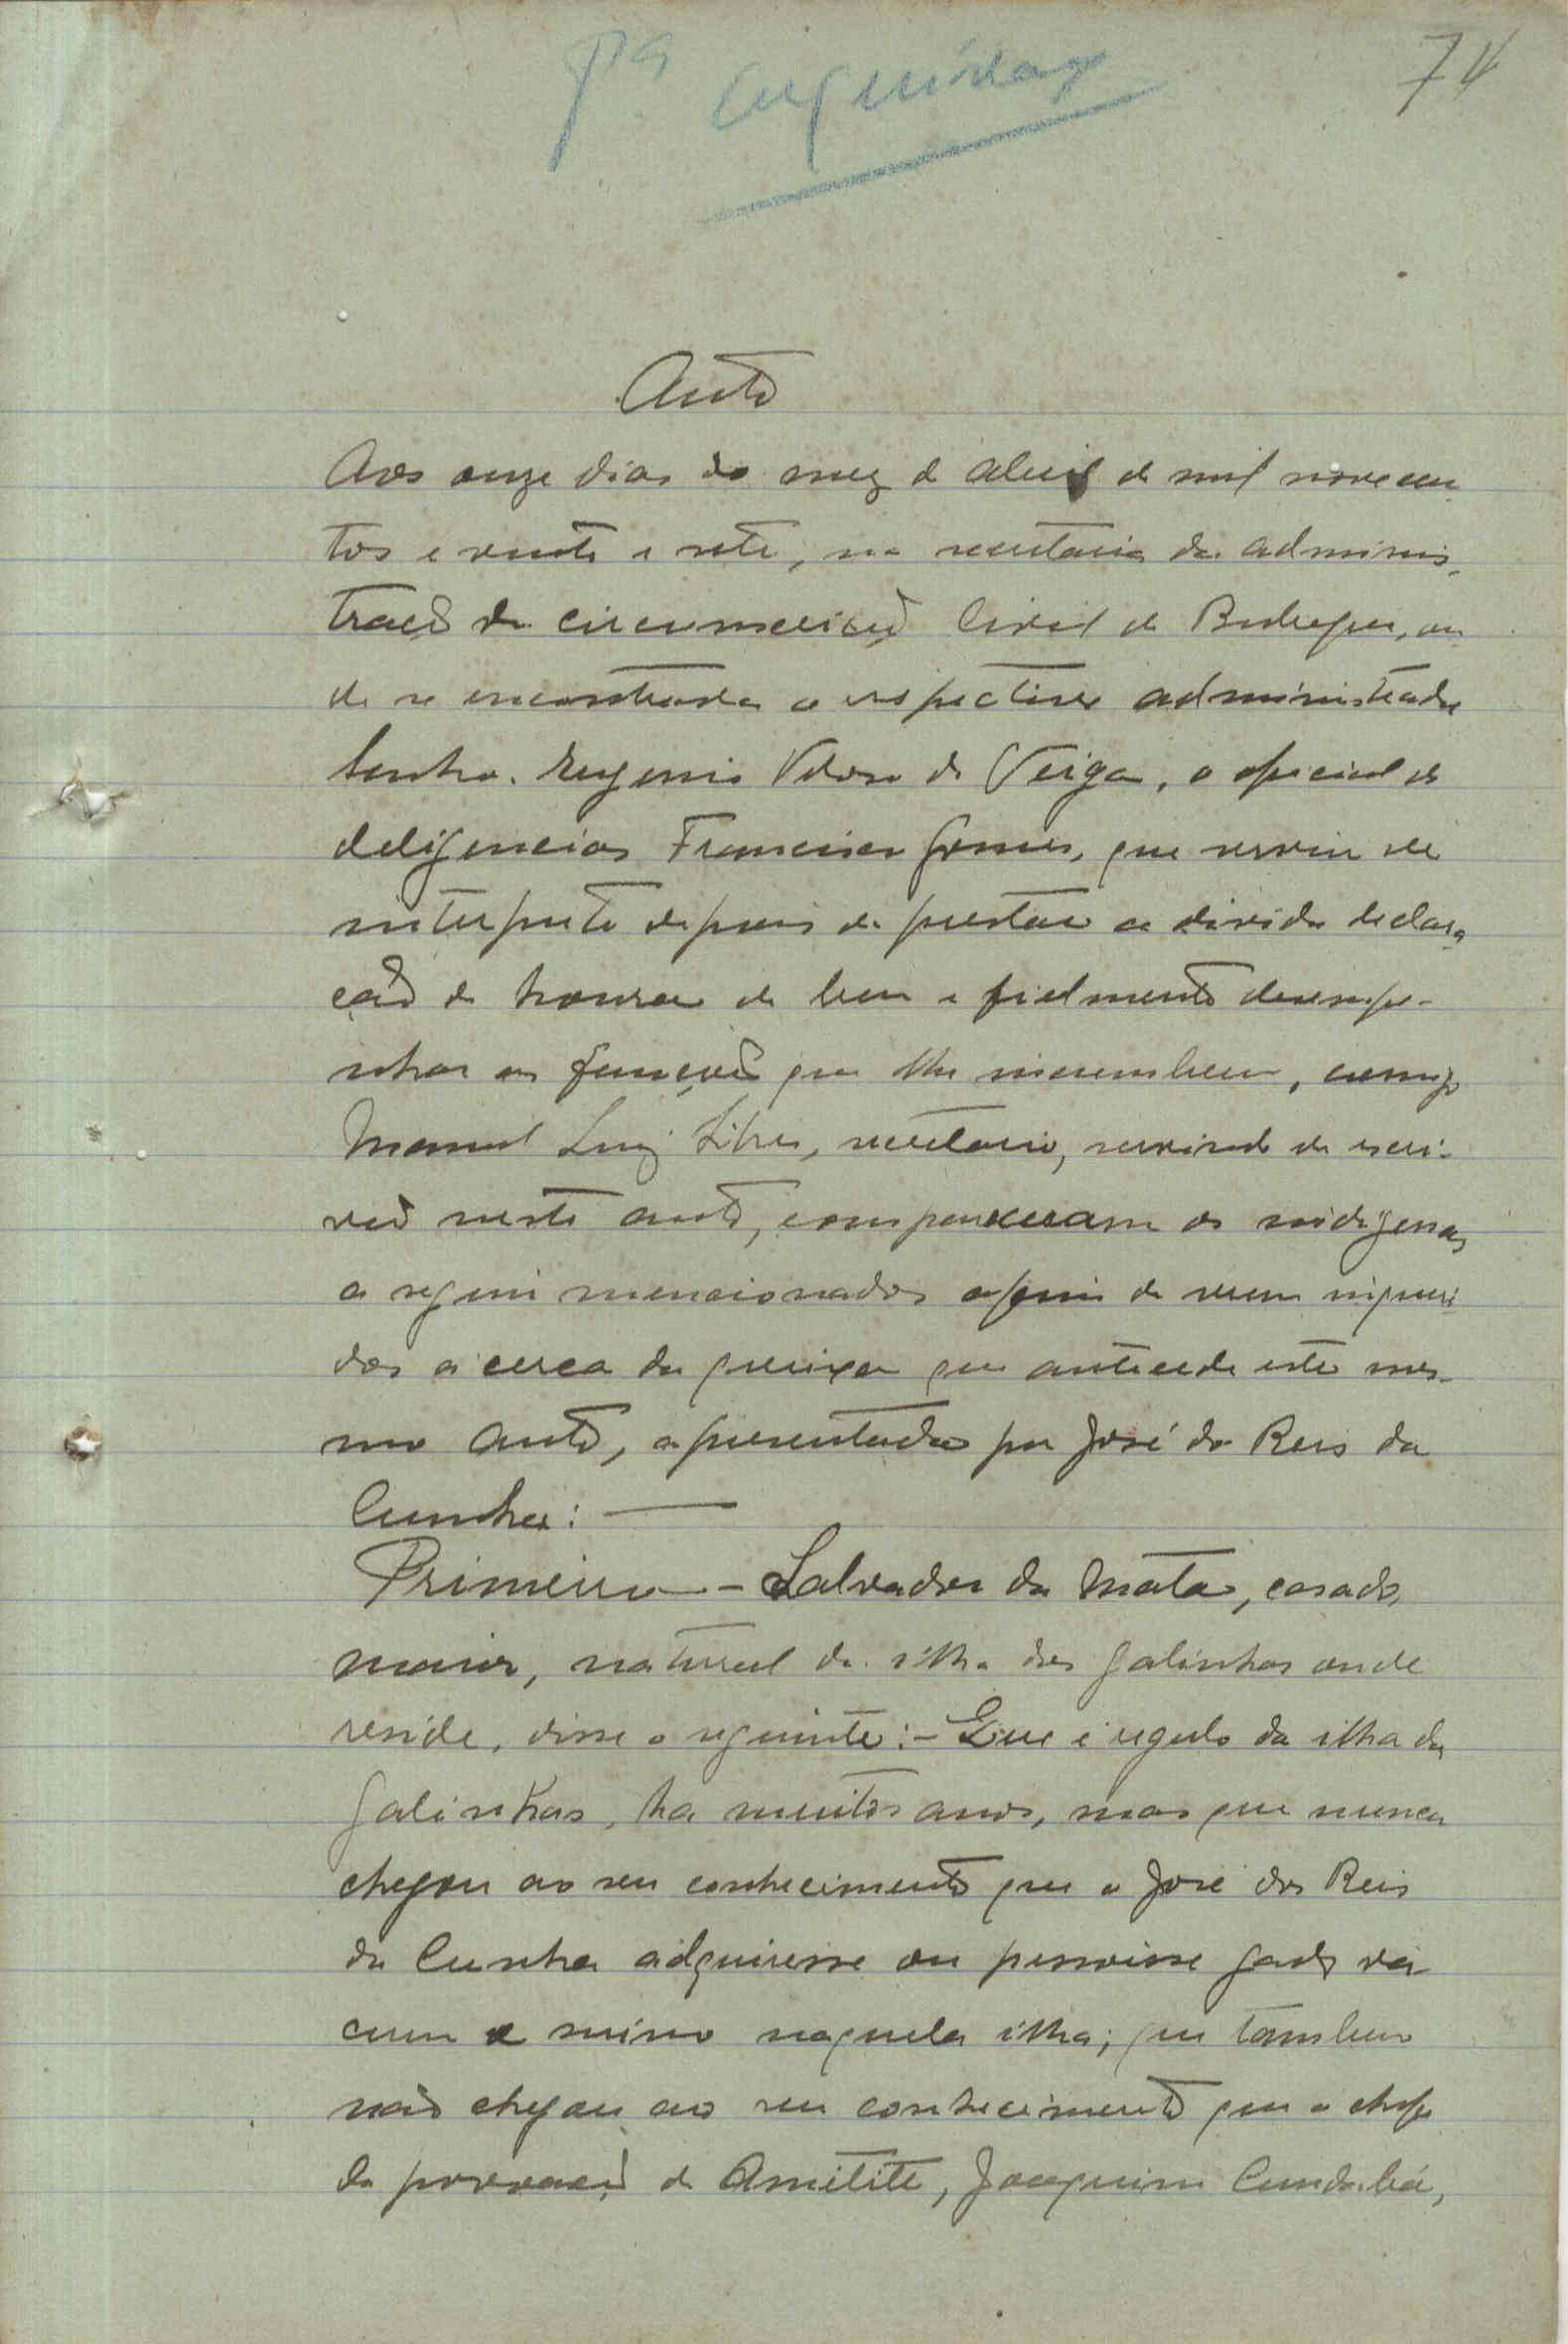 Pª
74
Auto
Aos onze dias do mez d abril de mil novecen-
tos e vinte e sete, na secretaria da adminis-
tração da circumscrição Civil de Bubaque, on
de se encontrava o respectivo administrador
Senhor Eugenio Veloso da Veiga, o oficial de
deligencias Francisco Gomes, que serviu de
interprete depois de prestar a divida declara
ção de honra de bem e fielmente desempe-
nhar as funções que lhe incumbem, comigo
Manuel Luiz, secretario, servindo de escri-
vão neste auto, compareceram os indigenas
a seguir mencionados afim de serem inqueri
dos ácerca da queixa que antecede este mes-
mo auto, apresentada por José do Reis da
Cunha: —
Primeiro - Salvador da Mata, casado,
maior, natural da ilha das Galinhas onde
reside, disse o seguinte: - Que é regulo da ilha das
Galinhas, ha muitos anos, mas que nunca
chegou ao seu conhecimento que o José dos Reis
da Cunha adquiresse ou possuisse gado va
cum e suino naquela ilha; que tambem
não chegou ao seu conhecimento que o chefe
da povoação de Ametite, Joaquim